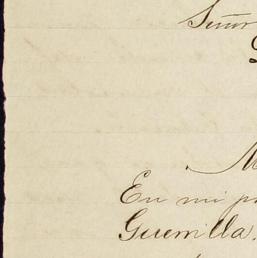 Señor
En mi
Guerrilla.